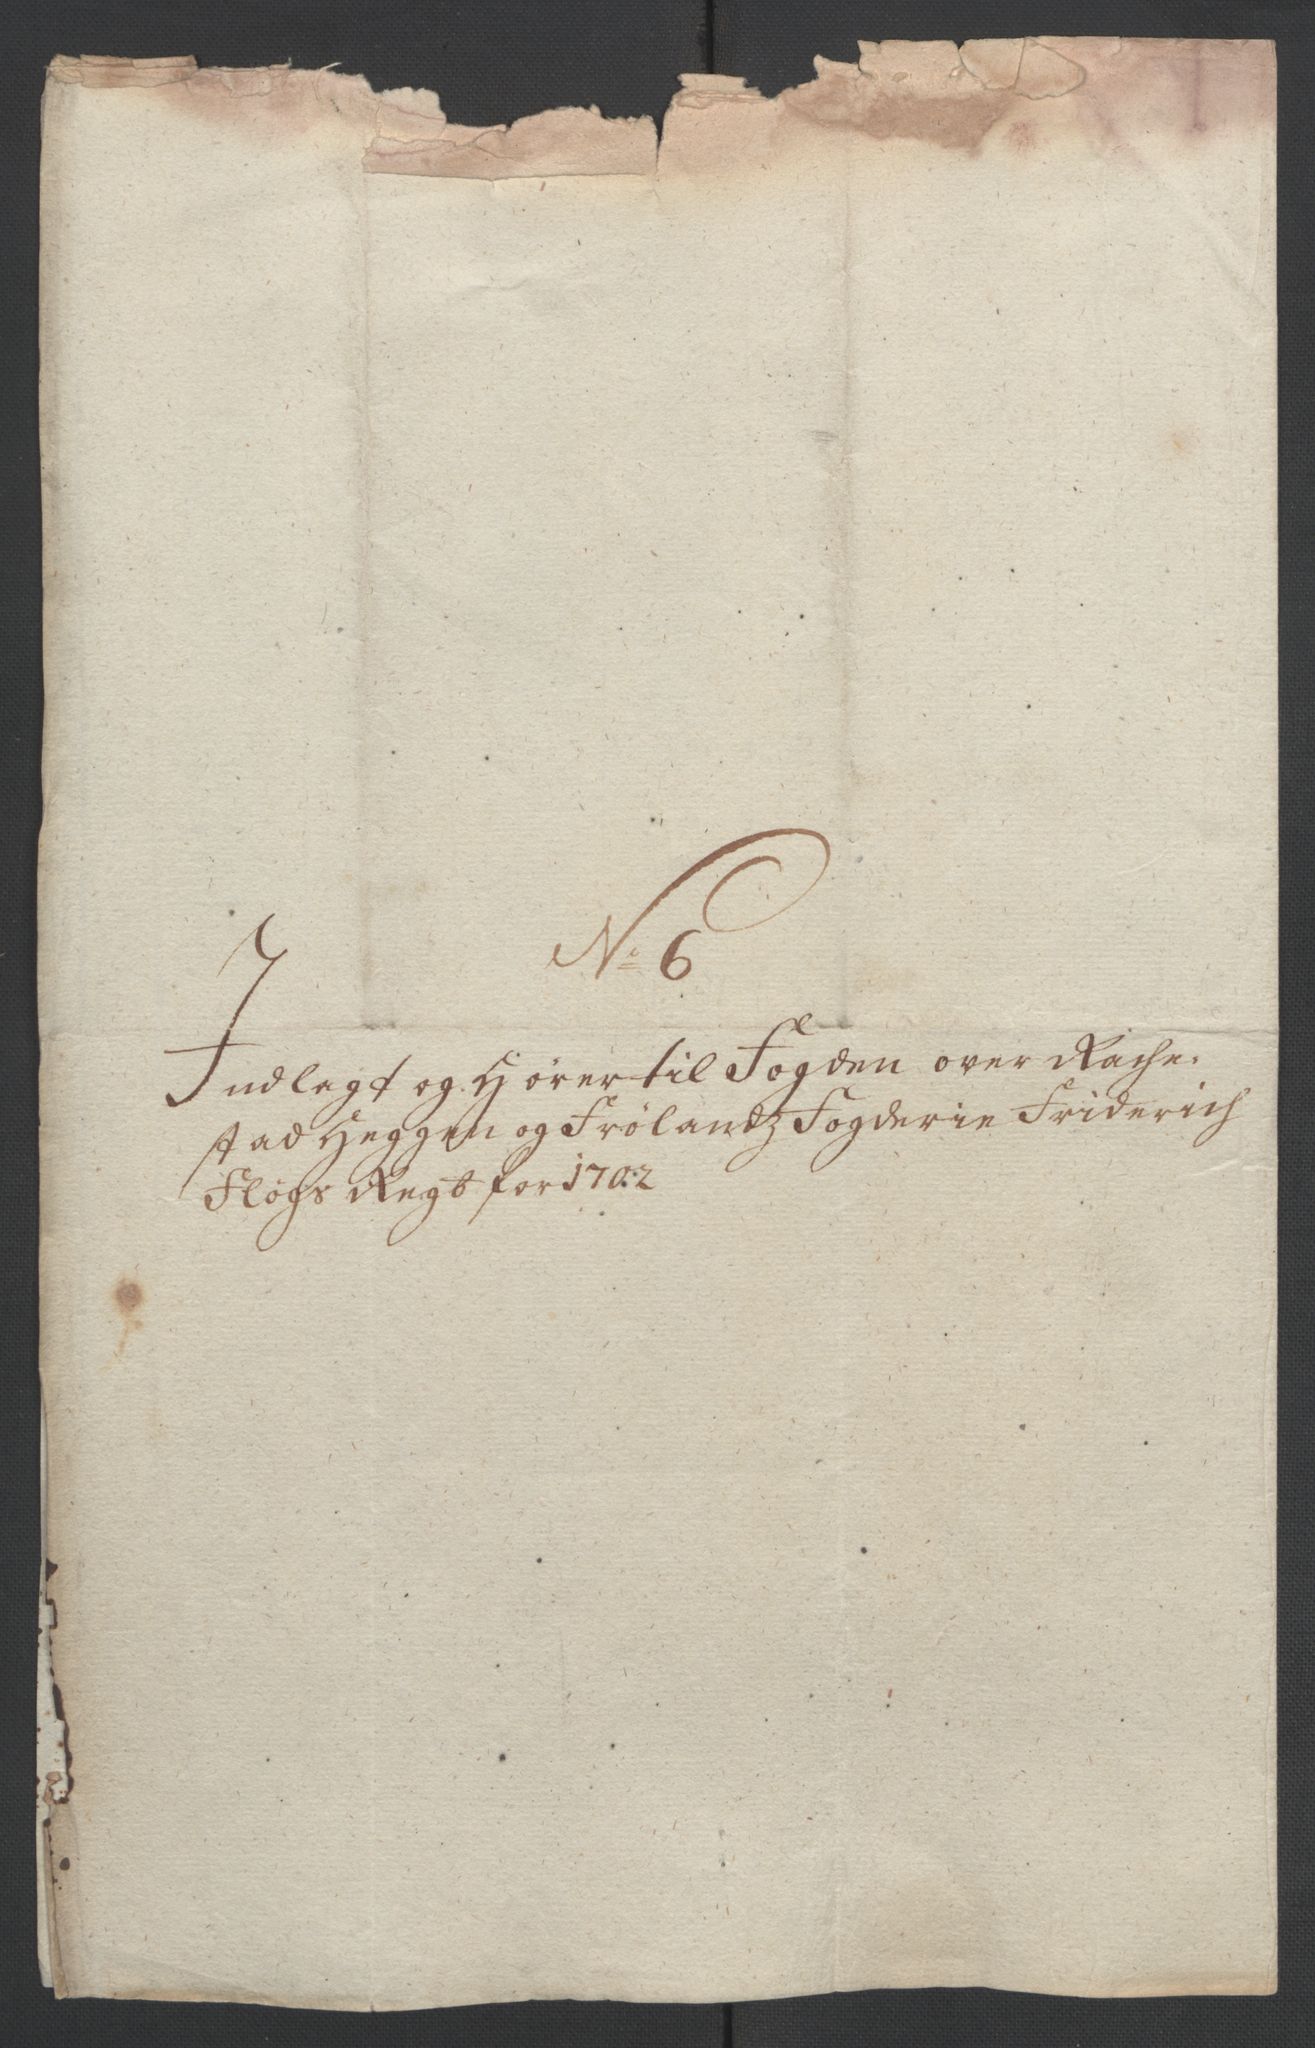 No 6
Indlagt og Hører til Fogden over Rache-
stad Heggen og Frølandz Fogderie Friderich
Fløgs Regb for 1702